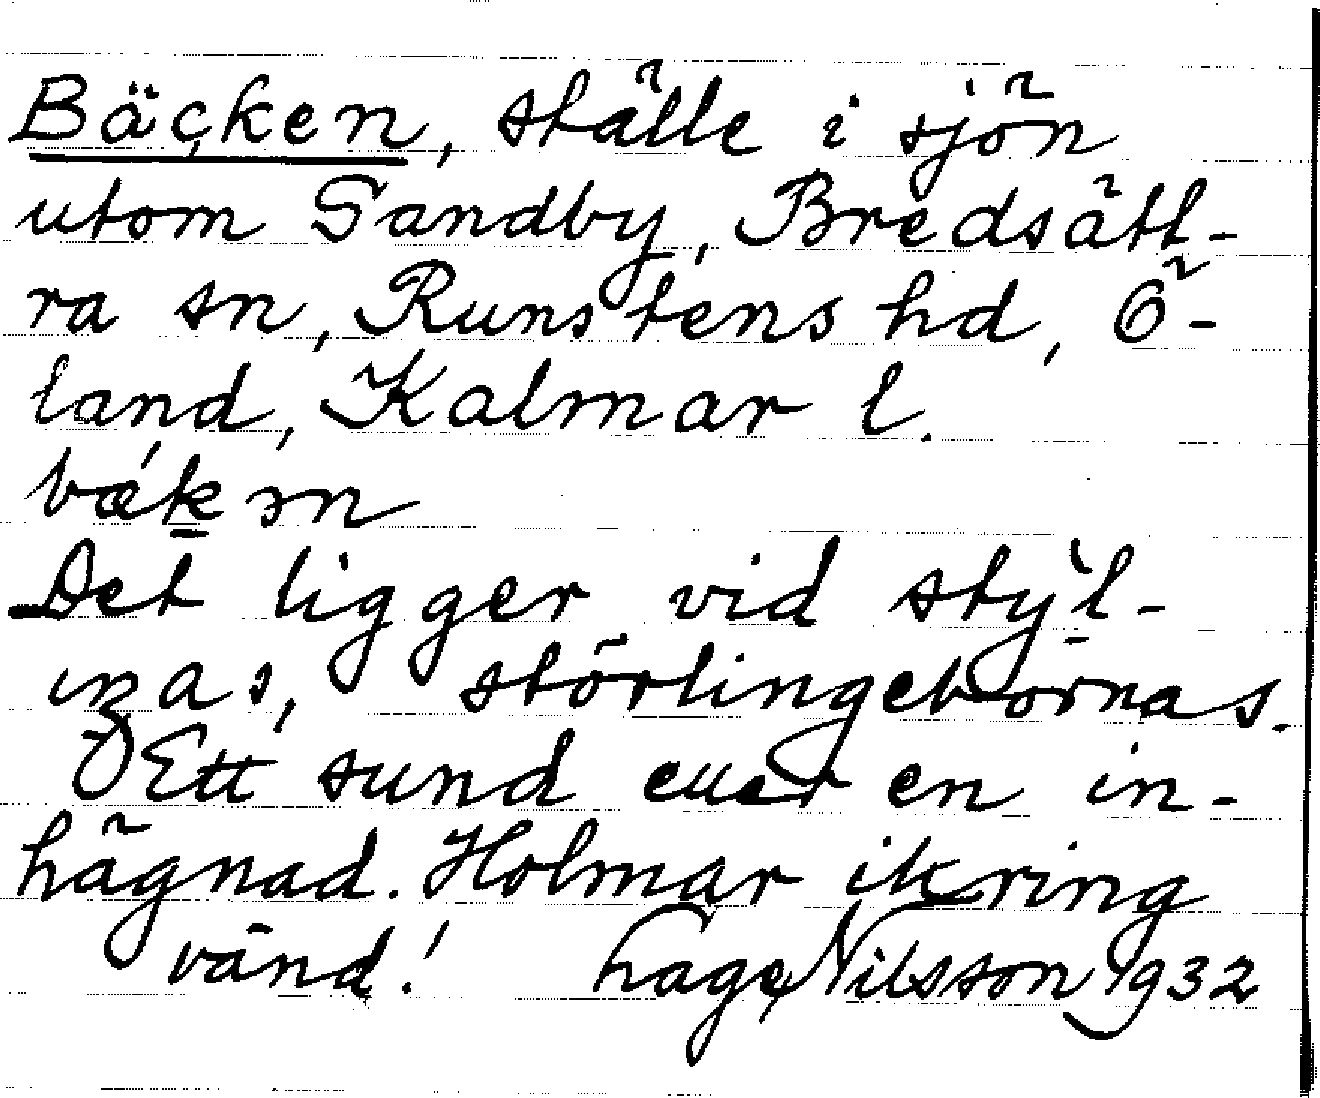 Bäcken, ställe i sjön
utom Sandby, Bredsätt-
ra sn, Runstens hd, Ö-
land, Kalmar l.
bæ'kən
Det ligger vid
störlingebornas.
Ett sund eller en in-
hägnad. Holmar ikring
vänd! Lage Nilsson 1932